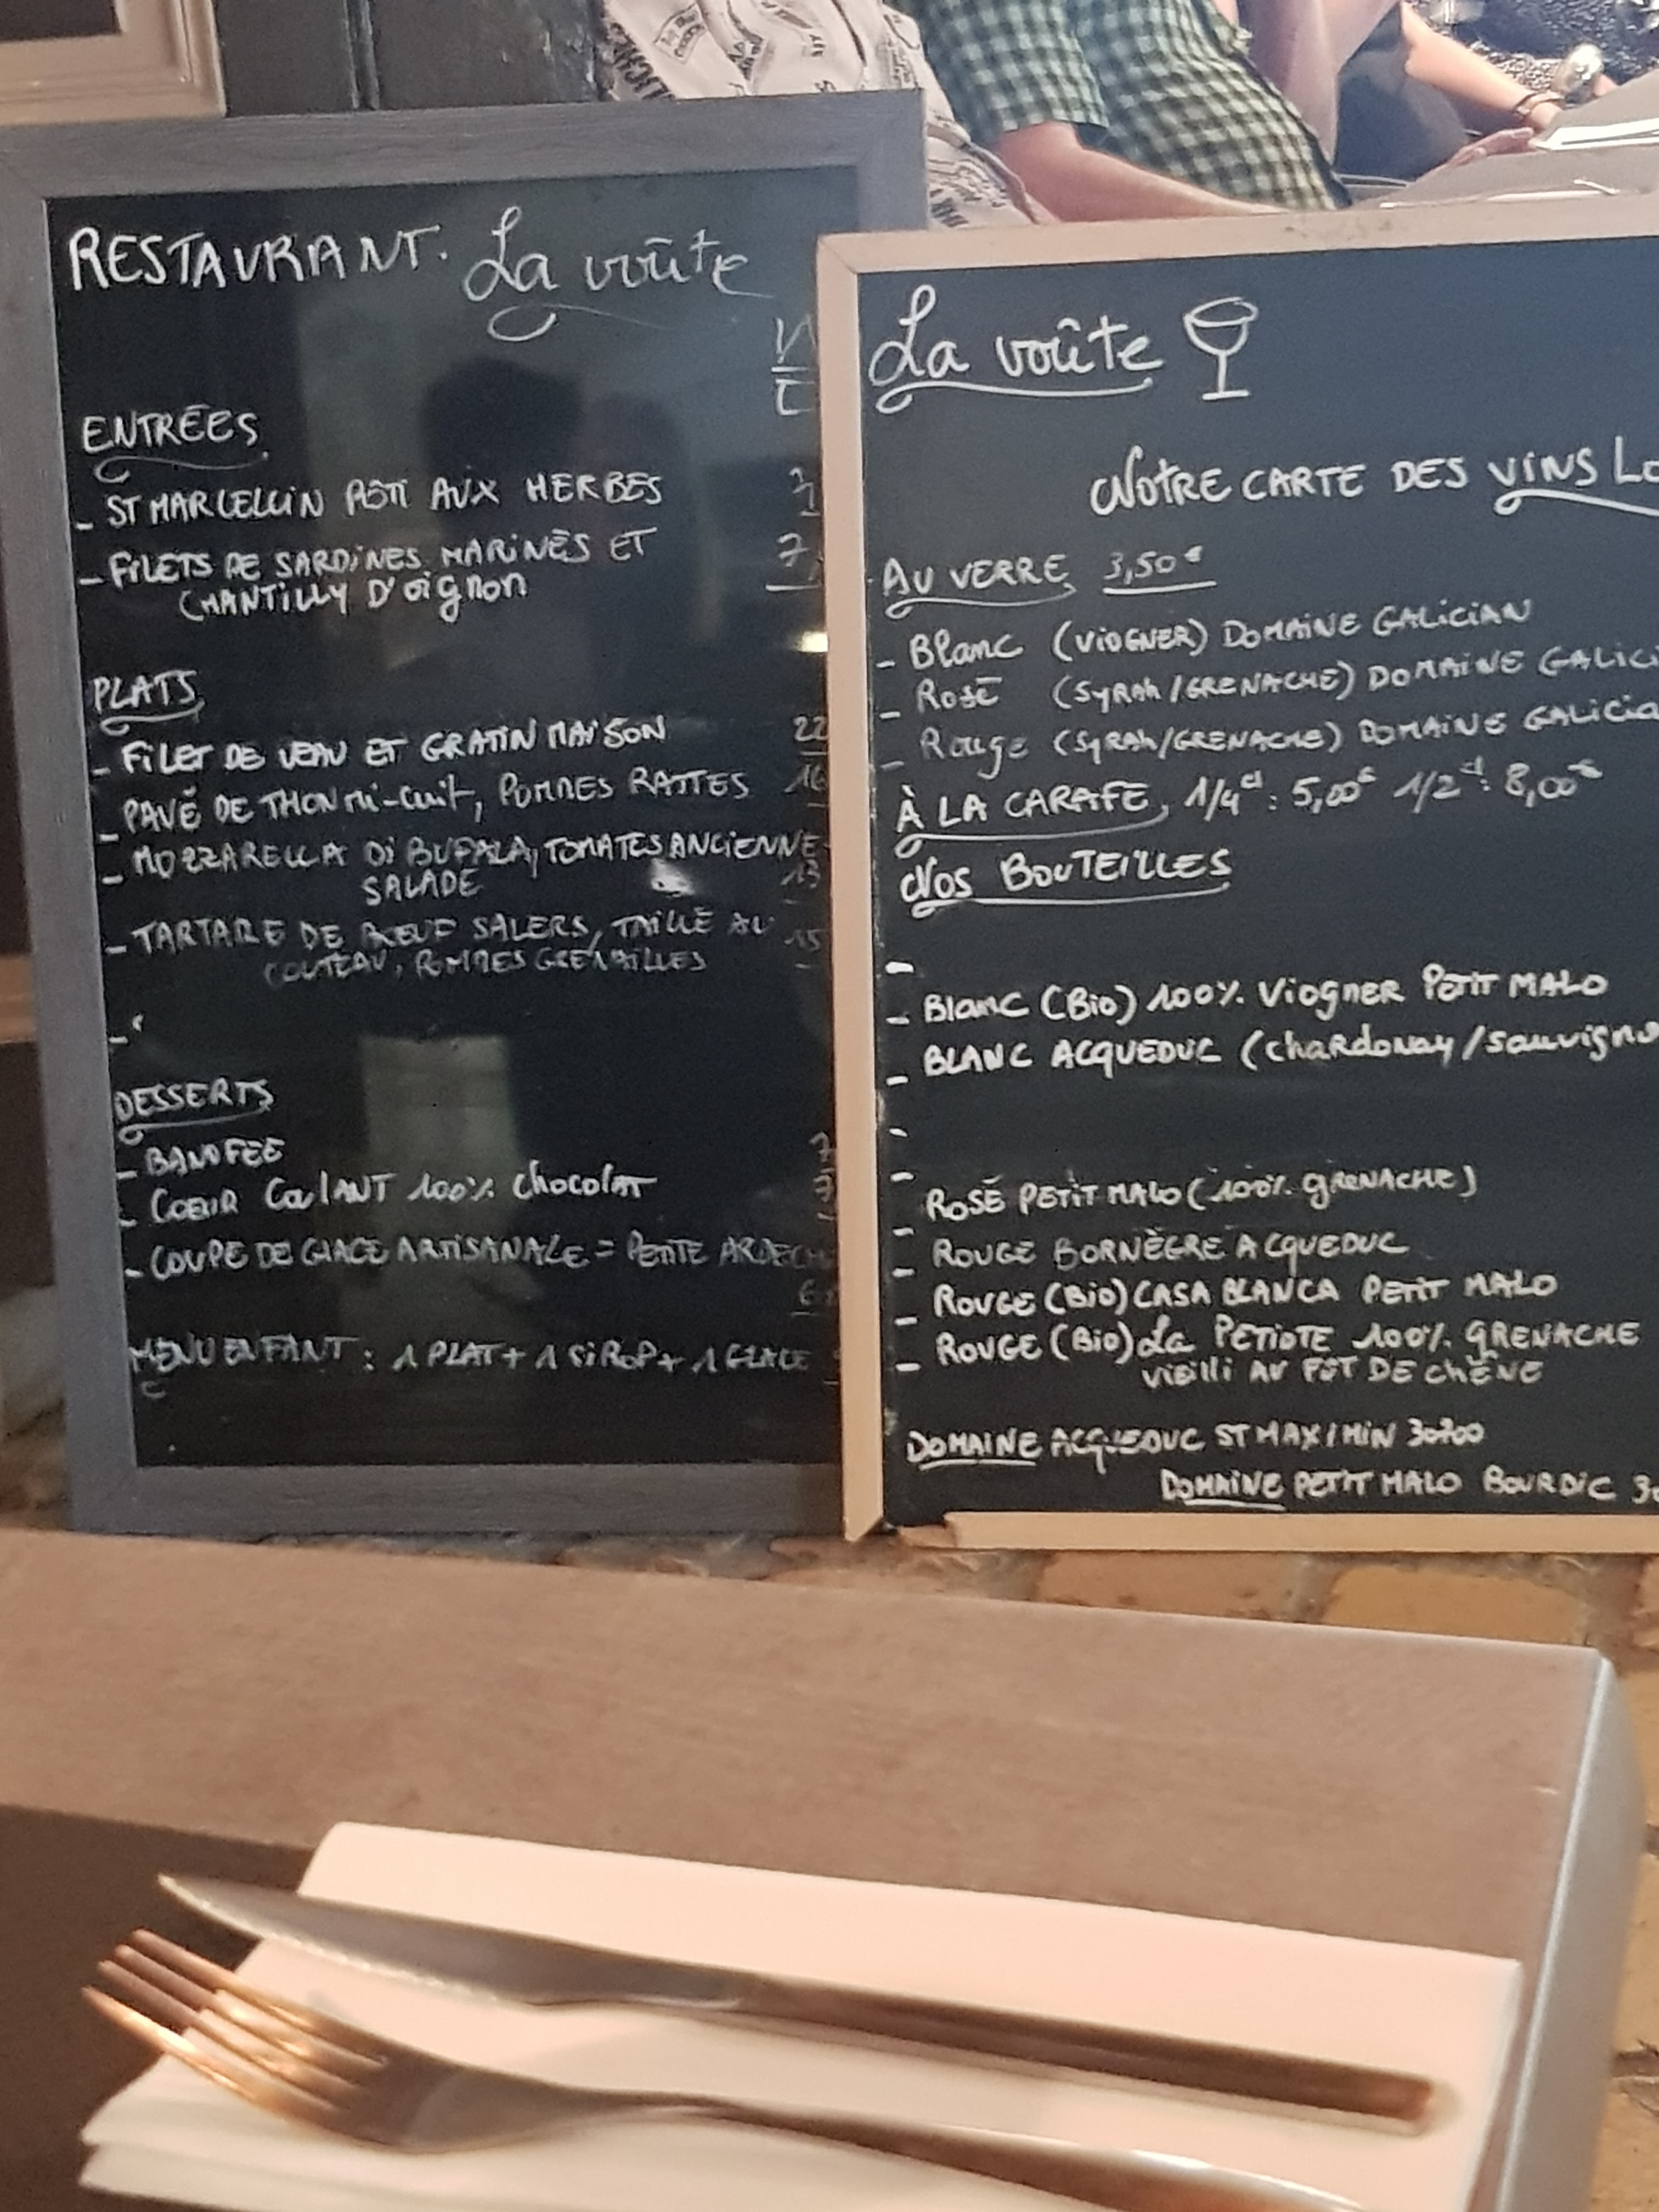 RESTAURANT. La voûte
ENTRÉES
- ST MARCELLIN RÔTI AUX HERBES
- FILETS DE SARDINES MARINÉS ET 7
CHANTILLY D'oignon
PLATS
- FILET DE VEAU ET GRATIN MAISON 22
- PAVÉ DE THON mi-cuit, POMMES RATTES 16
- MOZZARELLA Di BUFALA, TOMATES ANCIENNE
SALADE 13
- TARTARE DE BŒUF SALERS, TAILLÉ AU 15
COUTEAU, POMMES GRENAILLES
-
DESSERTS
- BANOFEE 7
- COEUR CoulANT 100% chocolat 7
- COUPE DE GLACE ARTISANALE = PETITE ARDECH
6
MENU ENFANT : 1 PLAT + 1 SiROP + 1 GLACE
La voûte
NOTRE CARTE DES VINS LO
AU VERRE 3,50€
- Blanc (VIOGNER) DOMAINE GALICIAN
- Rosé (SYRAH/GRENACHE) DOMAINE GALICI
- Rouge (SYRAH/GRENACHE) DOMAINE GALICIA
À LA CARAFE, 1/4cl : 5,00€ 1/2cl : 8,00€
NOS BOUTEILLES
-
- Blanc (Bio) 100% Viogner PETIT MALO
- BLANC ACQUEDUC (chardonay/sauvigno
-
-
- ROSÉ PETIT MALO (100% GRENACHE)
- ROUGE BORNÈGRE ACQUEDUC
- ROUGE (Bio) CASA BLANCA PETIT MALO
- ROUGE (Bio) La PETIOTE 100% GRENACHE
VIEILLI AU FÛT DE CHÊNE
DOMAINE ACQUEDUC ST MAXIMIN 30700
DOMAINE PETIT MALO BOURDIC 30